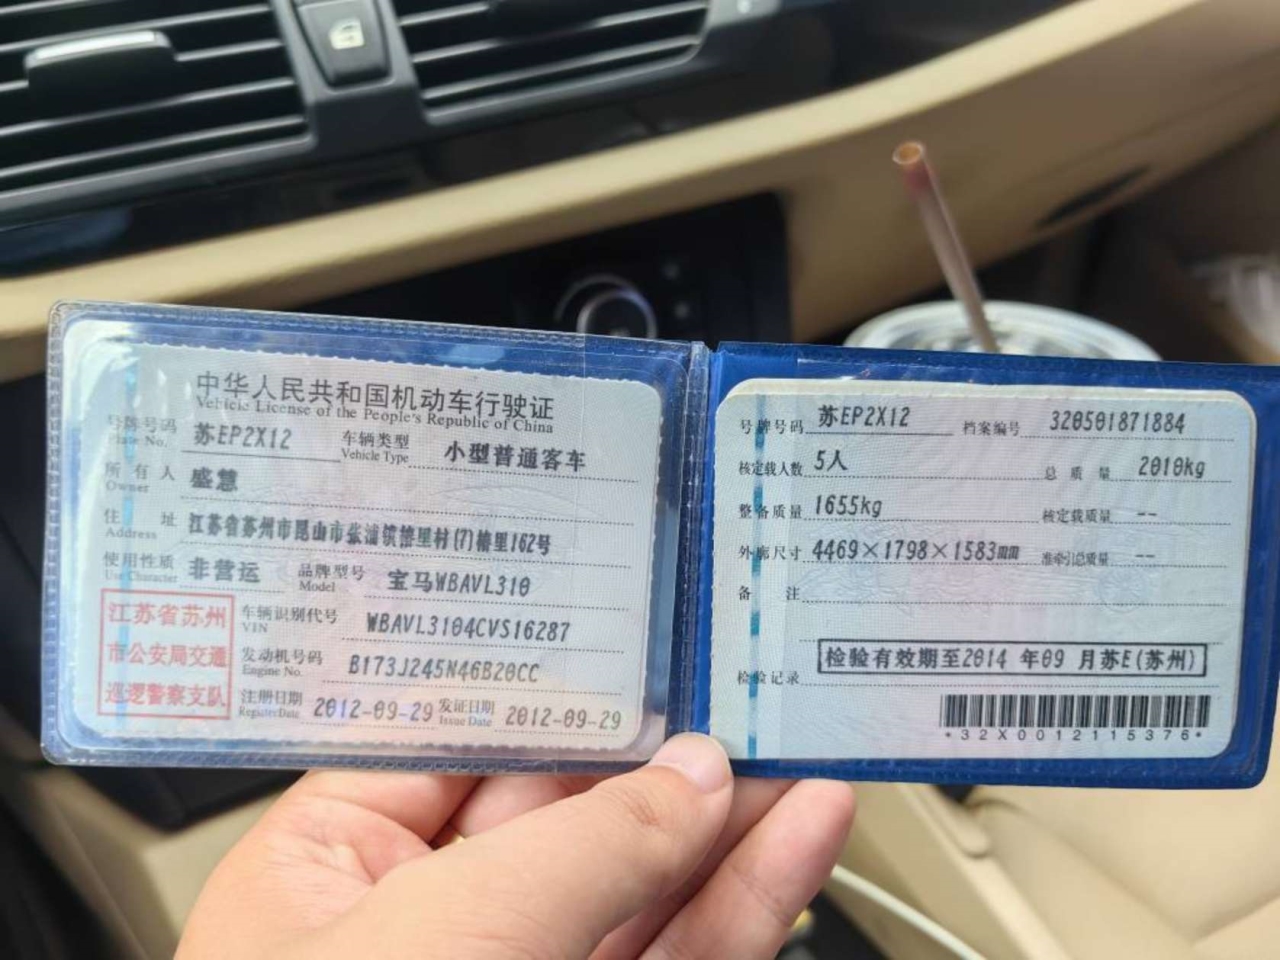 中华人民共和国机动车行驶证
Vehicle License of the People's Republic of China
号牌号码 苏EP2X12 车辆类型 小型普通客车
Plate No. Vehicle Type
所有人 盛慧
Owner
住址 江苏省苏州市昆山市张浦镇 里村(7) 里162号
Address
使用性质 非营运 品牌型号 宝马WBAVL310
Use Character Model
江苏省苏州
市公安局交通
巡逻警察支队
车辆识别代号 WBAVL3104CVS16287
VIN
发动机号码 B173J245N46B20CC
Engine No.
注册日期 2012-09-29 发证日期 2012-09-29
Register Date Issue Date
号牌号码 苏EP2X12 档案编号 320501871884
核定载人数 5人 总质量 2010kg
整备质量 1655kg 核定载质量 --
外廓尺寸 4469×1798×1583mm 准牵引总质量 --
备注
检验记录 检验有效期至2014年09月苏E(苏州)
*32X0012115376*